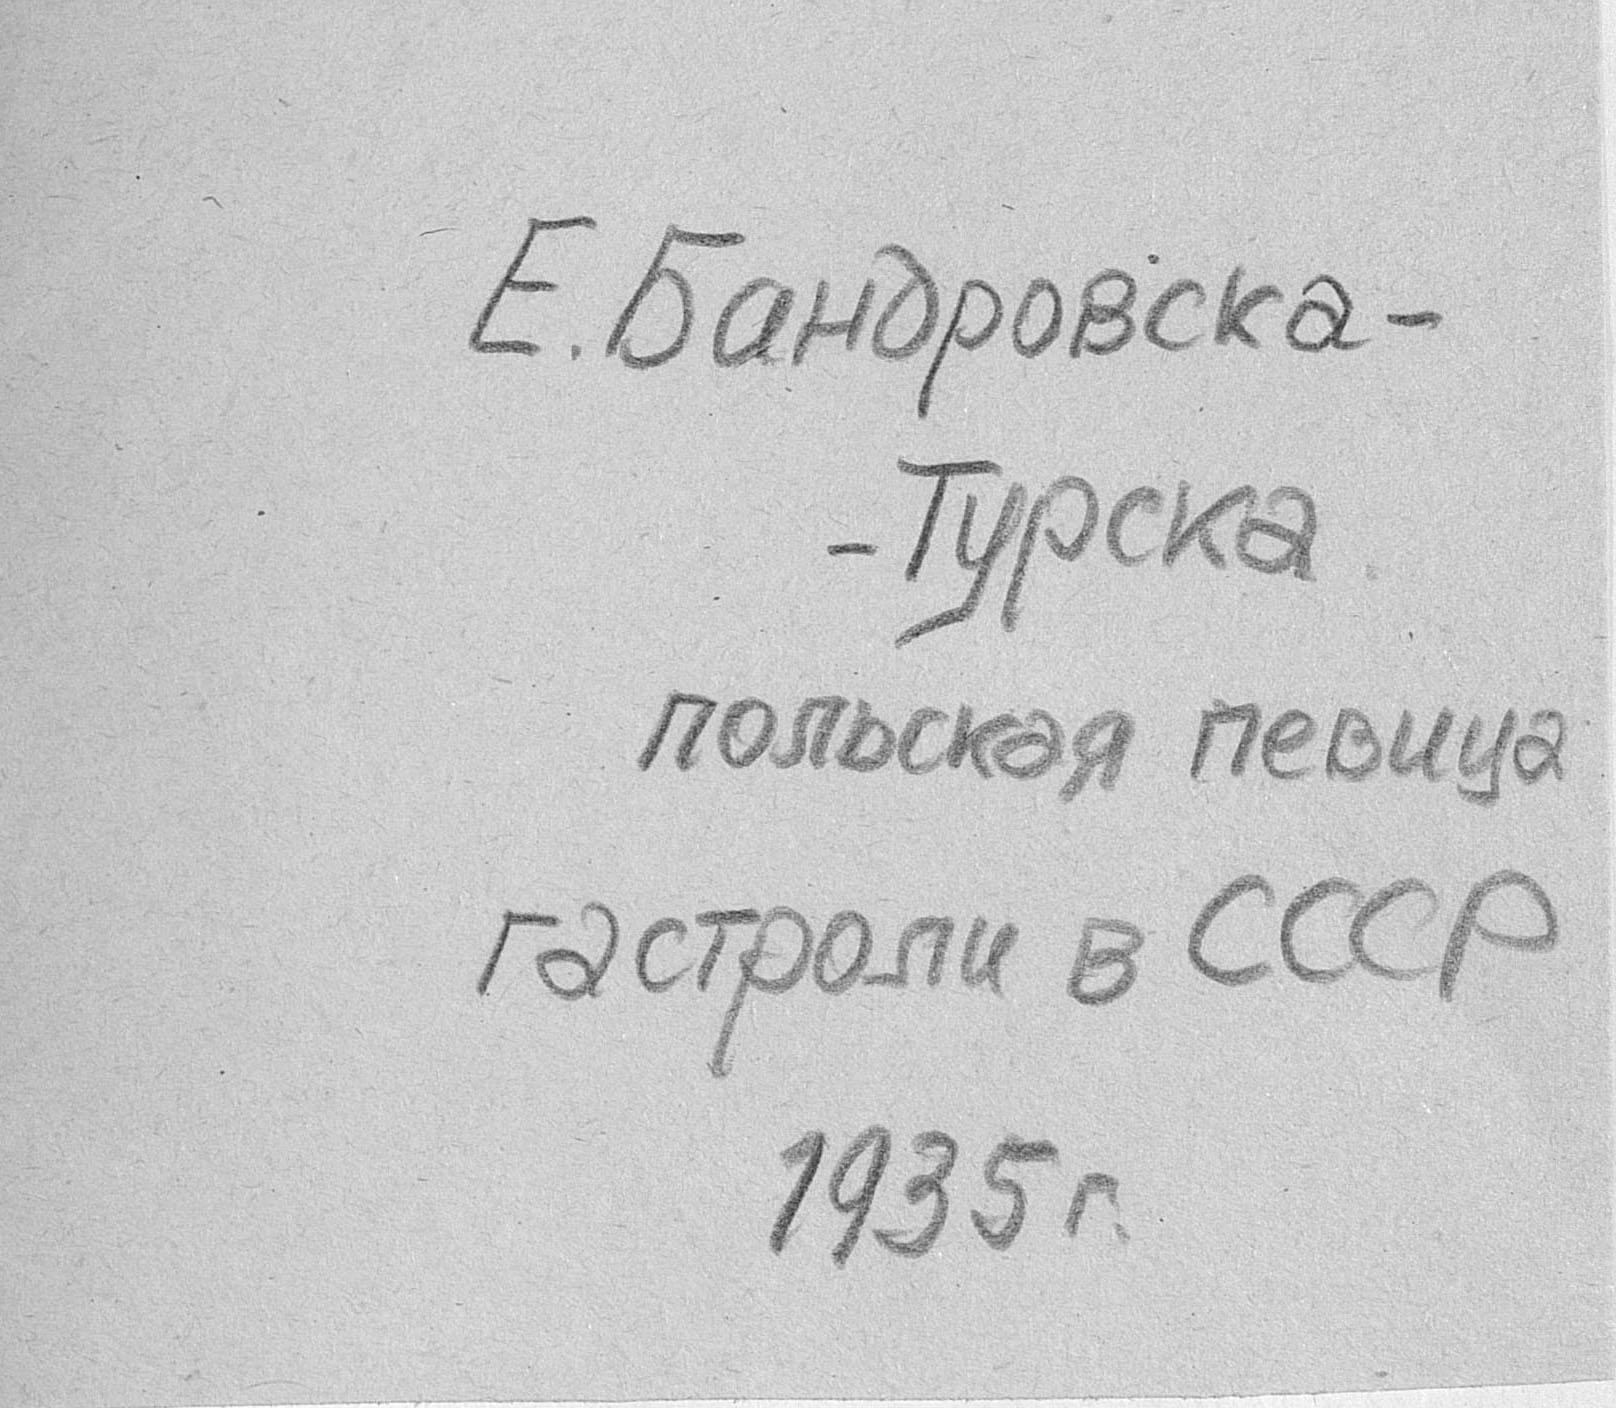 Е. Бандровска-
-Турска
польская певица
гастроли в СССР
1935 г.